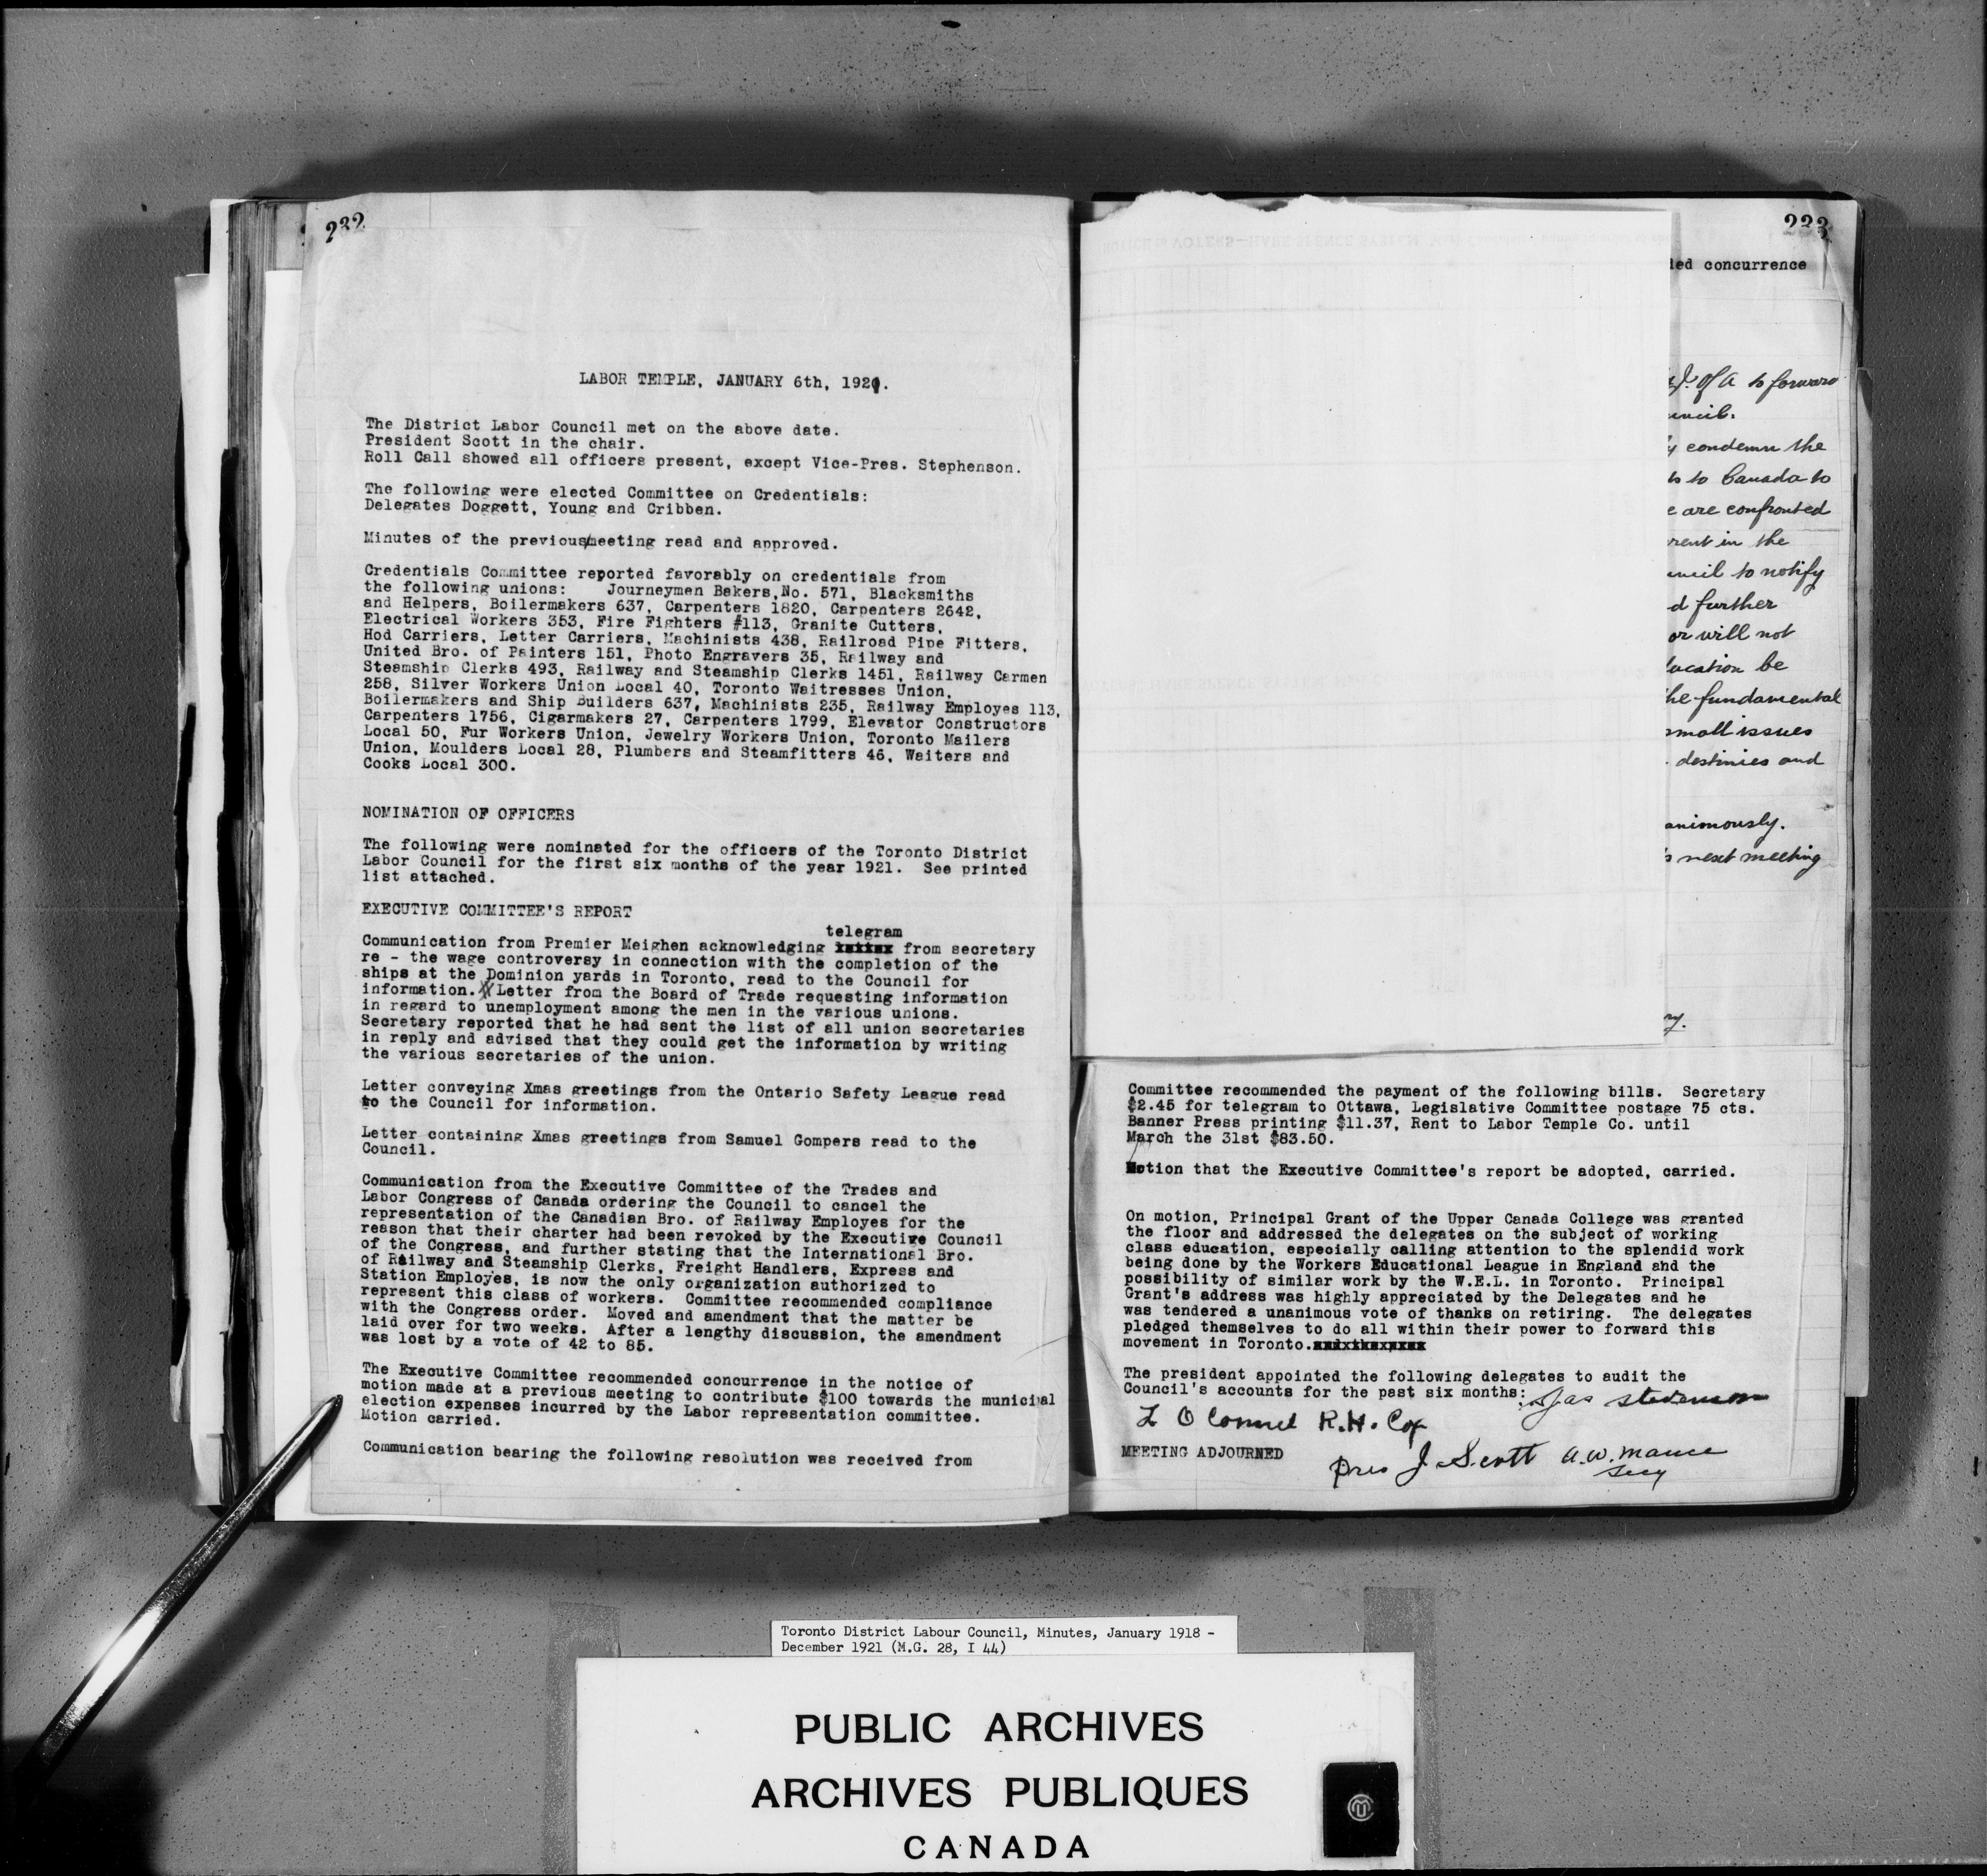 232
LABOR TEMPLE, JANUARY 6th, 1921.
The District Labor Council met on the above date.
President Scott in the chair.
Roll Call showed all officers present, except Vice-Pres. Stephenson.
The following were elected Committee on Credentials:
Delegates Doggett, Young and Cribben.
Minutes of the previous/meeting read and approved.
Credentials Committee reported favorably on credentials from
the following unions: Journeymen Bakers,No. 571, Blacksmiths
and Helpers, Boilermakers 637, Carpenters 1820, Carpenters 2642,
Electrical Workers 353, Fire Fighters #113, Granite Cutters,
Hod Carriers, Letter Carriers, Machinists 438, Railroad Pipe Fitters,
United Bro. of Painters 151, Photo Engravers 35, Railway and
Steamship Clerks 493, Railway and Steamship Clerks 1451, Railway Carmen
258, Silver Workers Union Local 40, Toronto Waitresses Union,
Boilermakers and Ship Builders 637, Machinists 235, Railway Employes 113,
Carpenters 1756, Cigarmakers 27, Carpenters 1799, Elevator Constructors
Local 50, Fur Workers Union, Jewelry Workers Union, Toronto Mailers
Union, Moulders Local 28, Plumbers and Steamfitters 46, Waiters and
Cooks Local 300.
NOMINATION OF OFFICERS
The following were nominated for the officers of the Toronto District
Labor Council for the first six months of the year 1921. See printed
list attached.
EXECUTIVE COMMITTEE'S REPORT
telegram
Communication from Premier Meighen acknowledging from secretary
re - the wage controversy in connection with the completion of the
ships at the Dominion yards in Toronto, read to the Council for
information. Letter from the Board of Trade requesting information
in regard to unemployment among the men in the various unions.
Secretary reported that he had sent the list of all union secretaries
in reply and advised that they could get the information by writing
the various secretaries of the union.
Letter conveying Xmas greetings from the Ontario Safety League read
to the Council for information.
Letter containing Xmas greetings from Samuel Gompers read to the
Council.
Communication from the Executive Committee of the Trades and
Labor Congress of Canada ordering the Council to cancel the
representation of the Canadian Bro. of Railway Employes for the
reason that their charter had been revoked by the Executive Council
of the Congress, and further stating that the International Bro.
of Railway and Steamship Clerks, Freight Handlers, Express and
Station Employes, is now the only organization authorized to
represent this class of workers. Committee recommended compliance
with the Congress order. Moved and amendment that the matter be
laid over for two weeks. After a lengthy discussion, the amendment
was lost by a vote of 42 to 85.
The Executive Committee recommended concurrence in the notice of
motion made at a previous meeting to contribute $100 towards the municipal
election expenses incurred by the Labor representation committee.
Motion carried.
Communication bearing the following resolution was received from
233
ded concurrence
of A to forward
uncil.
condemn the
to Canada to
e are confronted
rent in the
uncil to notify
d further
or will not
ucation be
he fundamental
small issues
destinies and
animously.
next meeting
ry.
Committee recommended the payment of the following bills. Secretary
$2.45 for telegram to Ottawa, Legislative Committee postage 75 cts.
Banner Press printing $11.37, Rent to Labor Temple Co. until
March the 31st $83.50.
Motion that the Executive Committee's report be adopted, carried.
On motion, Principal Grant of the Upper Canada College was granted
the floor and addressed the delegates on the subject of working
class education, especially calling attention to the splendid work
being done by the Workers Educational League in England and the
possibility of similar work by the W.E.L. in Toronto. Principal
Grant's address was highly appreciated by the Delegates and he
was tendered a unanimous vote of thanks on retiring. The delegates
pledged themselves to do all within their power to forward this
movement in Toronto.
The president appointed the following delegates to audit the
Council's accounts for the past six months: Jas Stevenson
L O Connel R.H. Cox
MEETING ADJOURNED
Pres J. Scott A.W. Mance
Secy
Toronto District Labour Council, Minutes, January 1918 -
December 1921 (M.G. 28, I 44)
PUBLIC ARCHIVES
ARCHIVES PUBLIQUES
CANADA